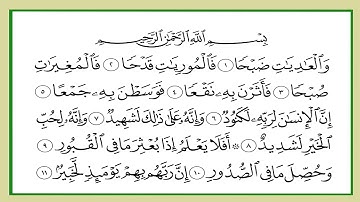 بِسْمِ اللَّهِ الرَّحْمَٰنِ الرَّحِيمِ
وَالْعَادِيَاتِ ضَبْحًا ١ فَالْمُورِيَاتِ قَدْحًا ٢ فَالْمُغِيرَاتِ
صُبْحًا ٣ فَأَثَرْنَ بِهِ نَقْعًا ٤ فَوَسَطْنَ بِهِ جَمْعًا ٥
إِنَّ الْإِنْسَانَ لِرَبِّهِ لَكَنُودٌ ٦ وَإِنَّهُ عَلَىٰ ذَٰلِكَ لَشَهِيدٌ ٧ وَإِنَّهُ لِحُبِّ
الْخَيْرِ لَشَدِيدٌ ٨ ۞ أَفَلَا يَعْلَمُ إِذَا بُعْثِرَ مَا فِي الْقُبُورِ ٩
وَحُصِّلَ مَا فِي الصُّدُورِ ١٠ إِنَّ رَبَّهُمْ بِهِمْ يَوْمَئِذٍ لَخَبِيرٌ ١١